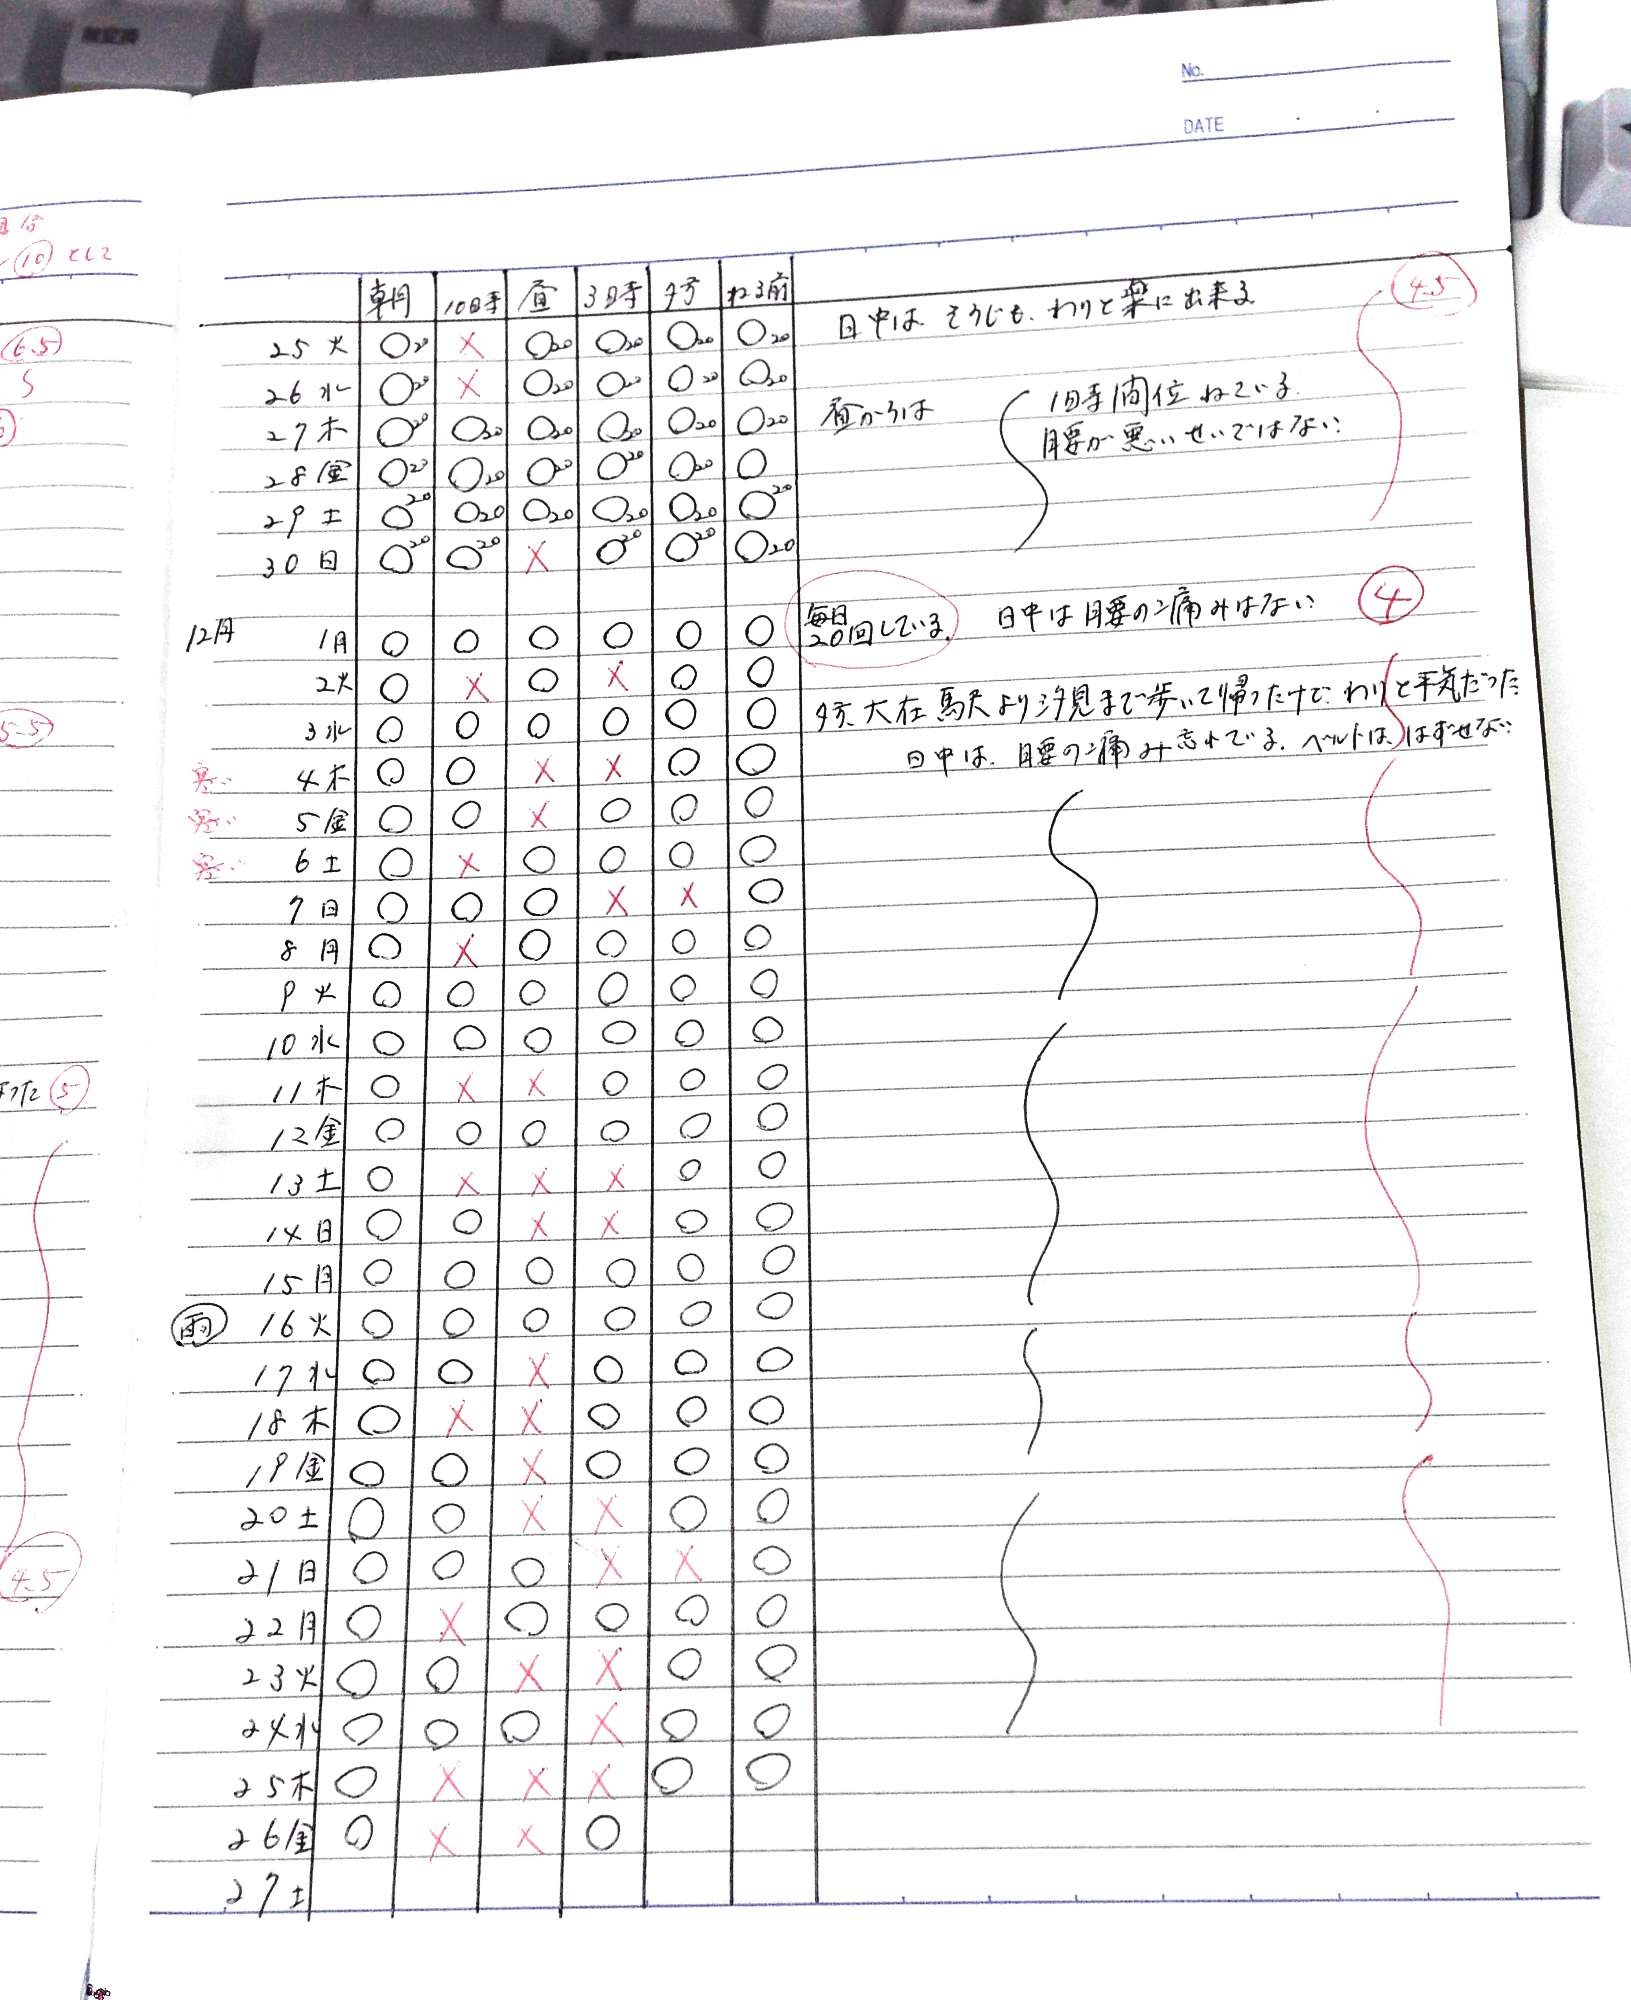 No.
DATE
朝 10時 昼 3時 夕方 ねる前
25 火 ○20 × ○20 ○20 ○20 ○20 日中は そうじも、わりと楽に出来る 4.5
26 水 ○20 × ○20 ○20 ○20 ○20
27 木 ○20 ○20 ○20 ○20 ○20 ○20 昼からは 1時間位ねている.
28 金 ○20 ○20 ○20 ○20 ○20 ○ 腰が悪いせいではない.
29 土 ○20 ○20 ○20 ○20 ○20 ○20
30 日 ○20 ○20 × ○20 ○20 ○20
12月 1月 ○ ○ ○ ○ ○ ○ 毎日20回している. 日中は腰の痛みはない 4
2火 ○ × ○ × ○ ○
3水 ○ ○ ○ ○ ○ ○ 夕方、大在馬尺より汐見まで歩いて帰ったけど、わりと平気だった
寒い 4木 ○ ○ × × ○ ○ 日中は、腰の痛み忘れでる. ベルトは、はずせない
寒い 5金 ○ ○ × ○ ○ ○
寒い 6土 ○ × ○ ○ ○ ○
7日 ○ ○ ○ × × ○
8月 ○ × ○ ○ ○ ○
9火 ○ ○ ○ ○ ○ ○
10水 ○ ○ ○ ○ ○ ○
11木 ○ × × ○ ○ ○
12金 ○ ○ ○ ○ ○ ○
13土 ○ × × × ○ ○
14日 ○ ○ × × ○ ○
15月 ○ ○ ○ ○ ○ ○
雨 16火 ○ ○ ○ ○ ○ ○
17水 ○ ○ × ○ ○ ○
18木 ○ × × ○ ○ ○
19金 ○ ○ × ○ ○ ○
20土 ○ ○ × × ○ ○
21日 ○ ○ ○ × × ○
22月 ○ × ○ ○ ○ ○
23火 ○ ○ × × ○ ○
24水 ○ ○ ○ × ○ ○
25木 ○ × × × ○ ○
26金 ○ × × ○
27土
10 として
6.5
5
5.5
った 5
4.5